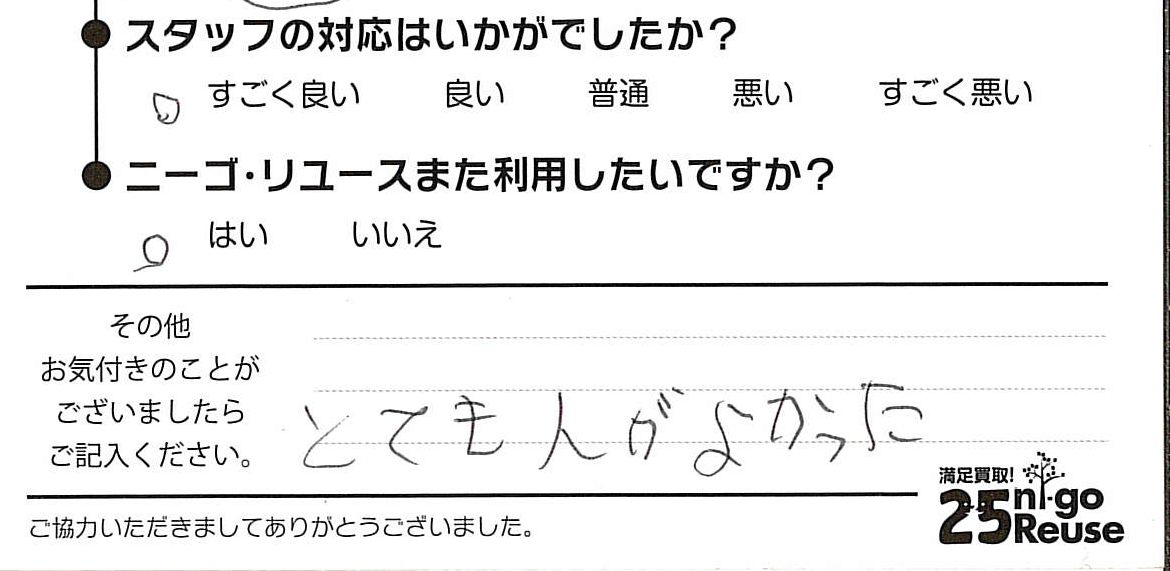 スタッフの対応はいかがでしたか？
すごく良い 良い 普通 悪い すごく悪い
ニーゴ・リユースまた利用したいですか？
はい いいえ
その他
お気付きのことが
ございましたら
ご記入ください。
とても人がよかった
満足買取!
25 ni-go
Reuse
ご協力いただきましてありがとうございました。